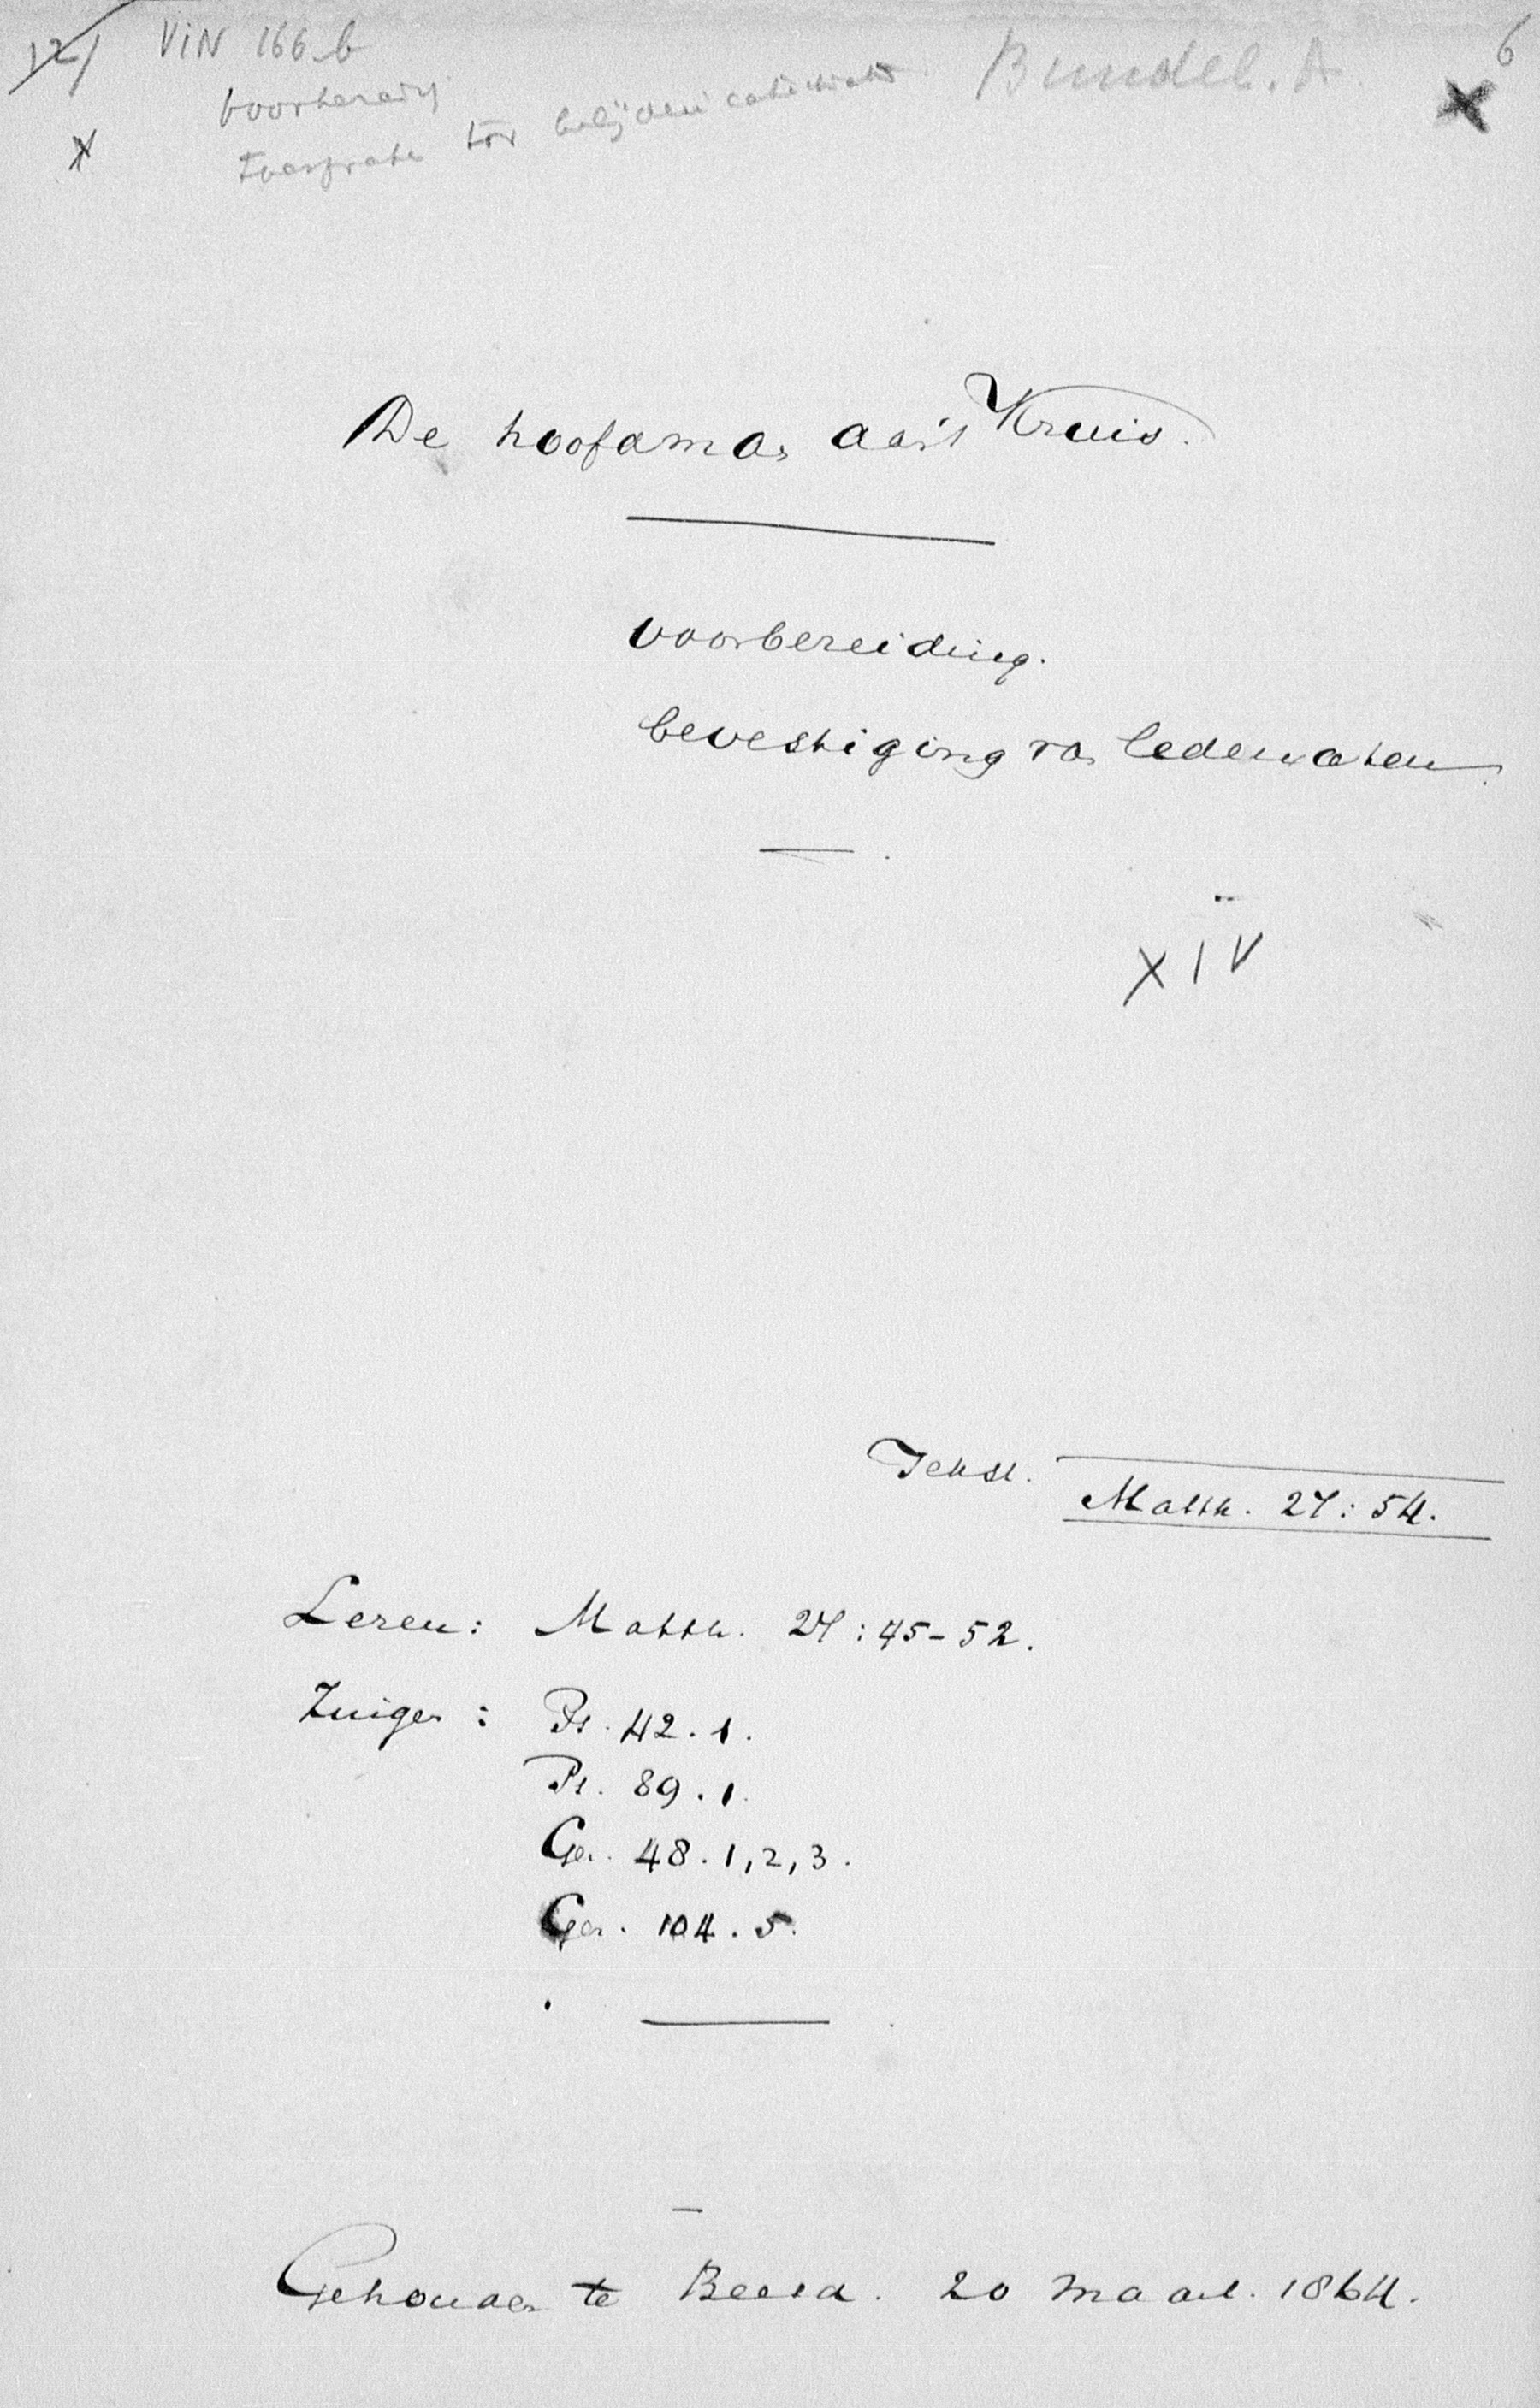 12/ VIN 166 b
Bundel. A
6
voorbereiding
X
X
toespraak tot belijdeniscatechisatie
De hoofdman aan 't Kruis.
voorbereiding.
bevestiging van ledematen.
XIV
Tekst. Matth. 27:54.
Lezen: Matth. 27:45-52.
Zingen: Ps. 42.1.
Ps. 89.1.
Gez. 48.1,2,3.
Gez. 104.5.
Gehouden te Beesd. 20 Maart. 1864.